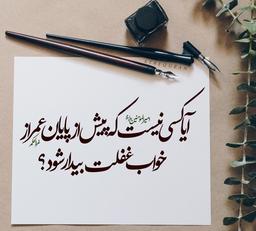 آیا کسی نیست که پیش از پایان عمر از
خواب غفلت بیدار شود؟